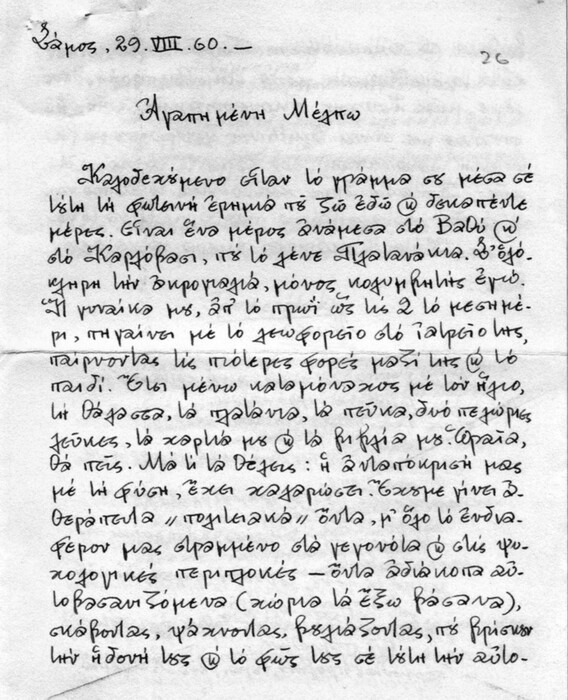 Σάμος, 29.VIII.60.—
26
Ἀγαπημένη Μέλπω
Καλοδεχούμενο εἶταν τὸ γράμμα σου μέσα σὲ
τούτη τὴ φωτεινὴ ἐρημιὰ ποὺ ζῶ ἐδῶ κ δεκαπέντε
μέρες. Εἶναι ἕνα μέρος ἀνάμεσα στὸ Βαθὺ κ
στὸ Καρλόβασι, ποὺ τὸ λένε Πλατανάκια. Σ' ὁλό-
κληρη τὴν ἀκρογιαλιά, μόνος κολυμβητὴς ἐγώ.
Ἡ γυναίκα μου, ἀπ' τὸ πρωῒ ὣς τὶς 2 τὸ μεσημέ-
ρι, πηγαίνει μὲ τὸ λεωφορεῖο στὸ ἰατρεῖο της,
παίρνοντας τὶς πιότερες φορὲς μαζί της κ τὸ
παιδί. Ἔτσι μένω καταμόναχος μὲ τὸν ἥλιο,
τὴ θάλασσα, τὰ πλατάνια, τὰ πεῦκα, δυὸ πελώριες
λεῦκες, τὰ χαρτιά μου κ τὰ βιβλία μου. Ὡραῖα,
θὰ πεῖς. Μὰ τί τὰ θέλεις: ἡ ἀνταπόκρισή μας
μὲ τὴ φύση, ἔχει χαλαρώσει. Ἔχουμε γίνει ἀ-
θεράπευτα "πολιτειακὰ" ὄντα, μ' ὅλο τὸ ἐνδια-
φέρον μας στραμμένο στὰ γεγονότα κ στὶς ψυ-
χολογικὲς περιπλοκὲς — ὄντα ἀδιάκοπα αὐ-
τοβασανιζόμενα (χώρια τὰ ἔξω βάσανα),
σκάβοντας, ψάχνοντας, βουλιάζοντας, ποὺ βρίσκουν
τὴν ἡδονή τους κ τὸ φῶς τους σὲ τούτη τὴν αὐτο-